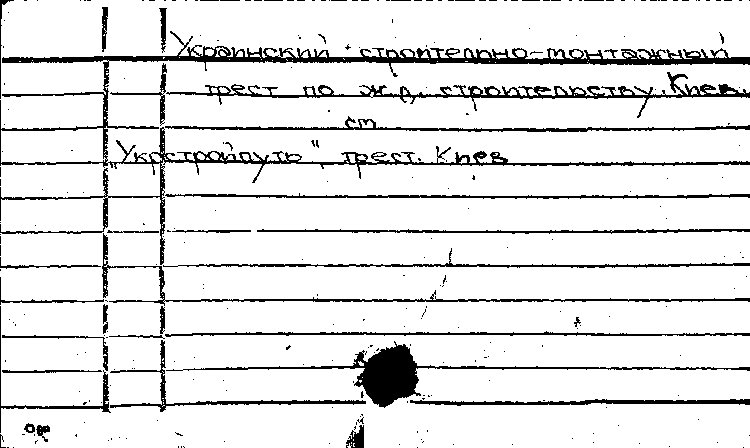 Украинский строительно-монтажный
трест по ж.д. строительству. Киев.
см.
"Укрстройпуть", трест. Киев